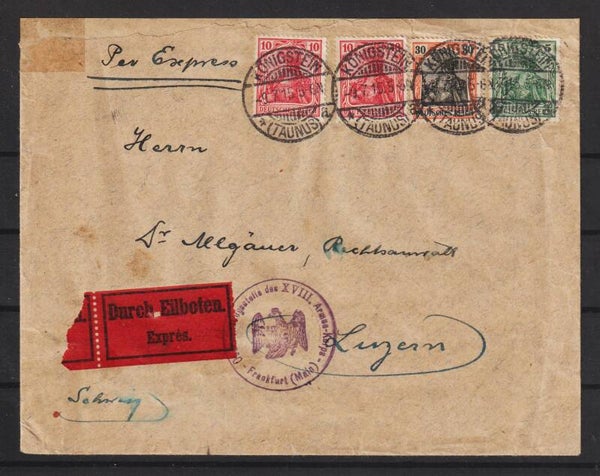 Per Express
10 10
10
30 30
5
DEUTSCHES
KÖNIGSTEIN
(TAUNUS)
KÖNIGSTEIN
(TAUNUS)
KÖNIGSTEIN
(TAUNUS)
(TAUNUS)
Herrn
Dr Allgäuer, Rechtsanwalt
Durch Eilboten.
Exprès.
des XVIII. Armee-Korps
Frankfurt (Main)
Luzern
Schweiz